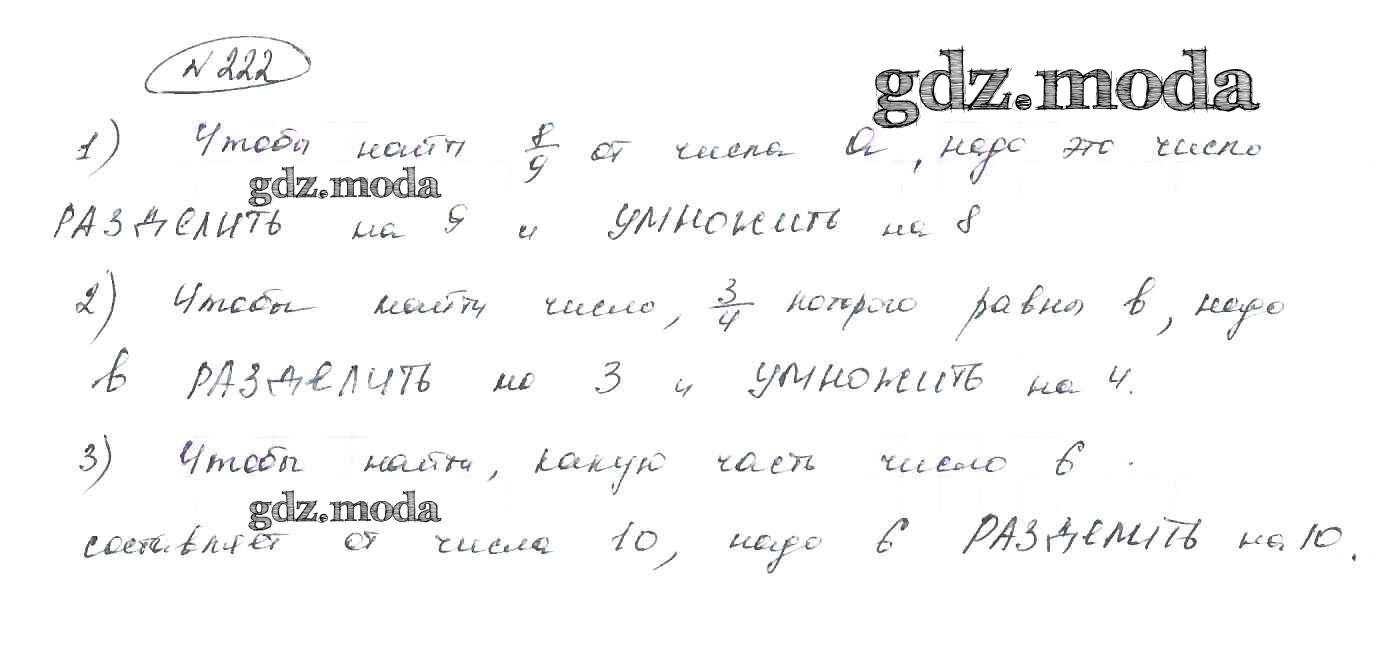 N 222
gdz.moda
1) Чтобы найти 8/9 от числа a, надо это число
gdz.moda
РАЗДЕЛИТЬ на 9 и УМНОЖИТЬ на 8
2) Чтобы найти число, 3/4 которого равны b, надо
b РАЗДЕЛИТЬ на 3 и УМНОЖИТЬ на 4.
3) Чтобы найти, какую часть число 6
gdz.moda
составляет от числа 10, надо 6 РАЗДЕЛИТЬ на 10.